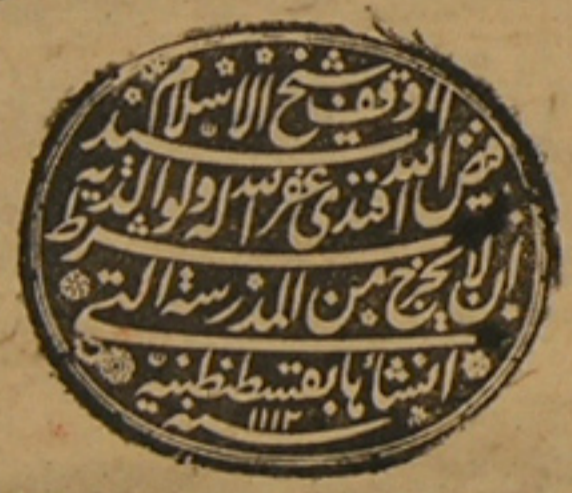 اوقف شيخ الاسلام السيد
فيض الله افندى غفر الله له ولوالديه
بشرط ان لا يخرج من المدرسة التى
انشأها بقسطنطينيه
سنه ١١١٢